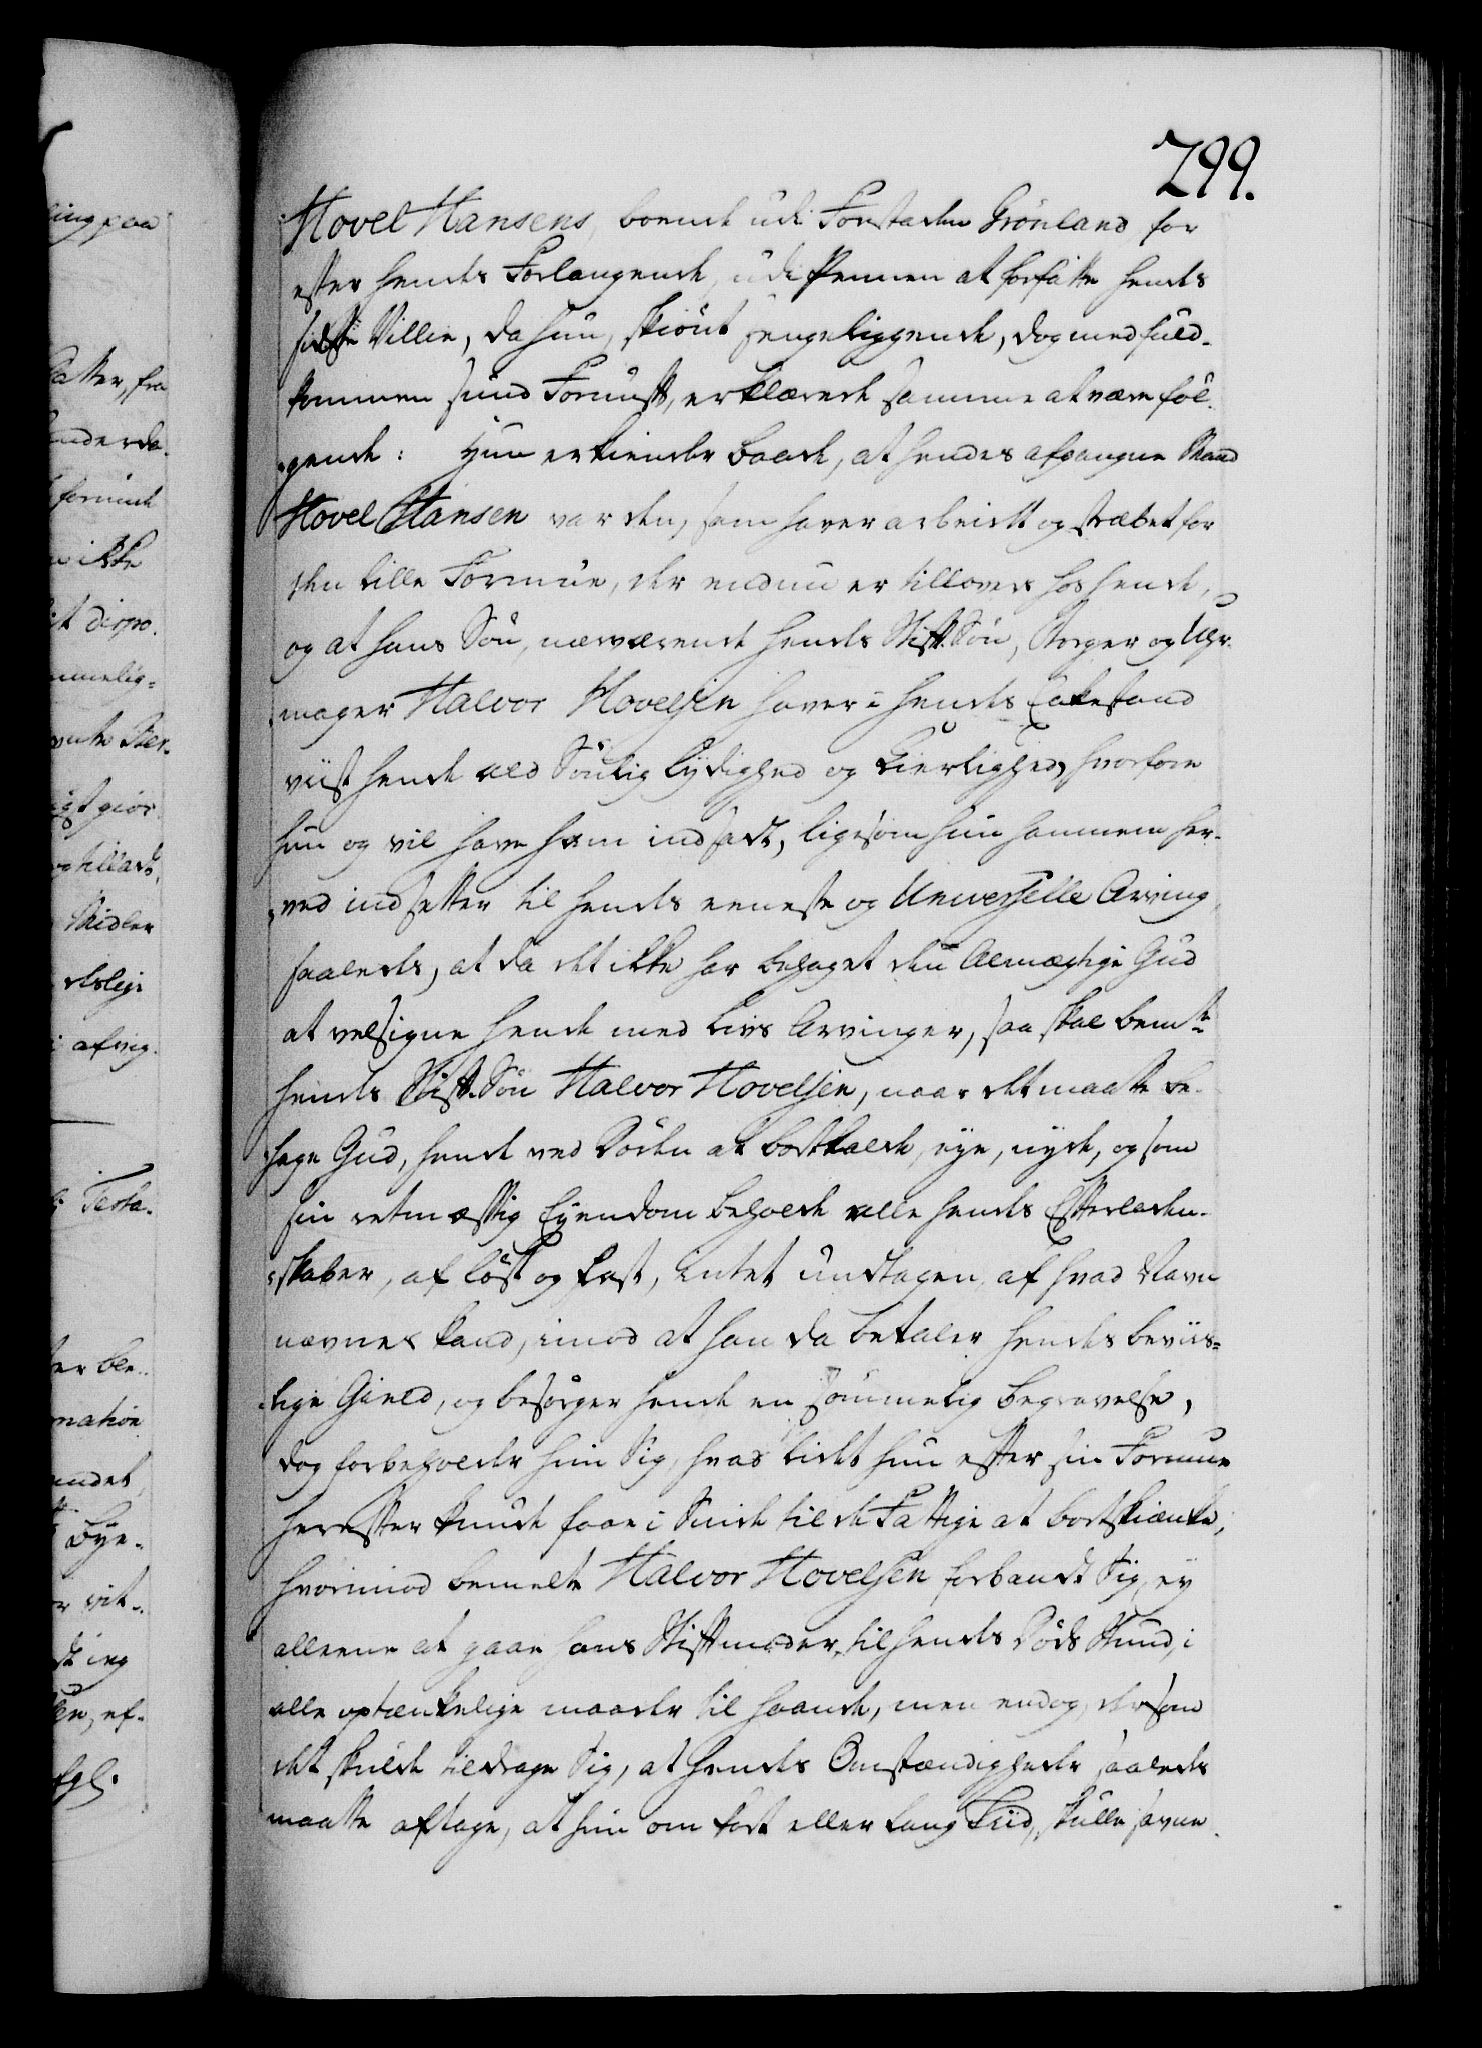 299.
Hovel Hansens, boende udi Forstaden Grönland, for
efter hendes Forlangende, udi Pennen at forfatte hendes
sidste Villie, da hun, skiönt sengeliggende, dog med fuld-
kommen sund Fornuft, erklærede samme at være föl-
gende: Hun erkiender baade, at hendes afgangne Mand
Hovel Hansen var den, som haver arbeidet og stræbet for
den lille Formue, der endnu er tilovers hos hende,
og at hans Sön, nærværende hendes Stift-Sön, Borger og Uhr-
mager Halvor Hovelsen haver i hendes Enkestand
viist hende ald Sönlig Lydighed og Kierlighed, hvorfore
hun og vil have ham indsadt, ligesom hun hannem her-
ved indsetter til hendes eeneste og Universelle Arving
saaledes, at da det ikke har behaget den Almægtige Gud
at velsigne hende med Livs Arvinger, saa skal bemte
hendes Stift-Sön Halvor Hovelsen, naar det maatte be-
hage Gud, hende ved Döden at bortkalde, eye, nyde, og som
sin retmæssig Eyendom beholde alle hendes Efterladen-
skaber, af löst og fast, intet undtagen, af hvad Navn
nævnes kand, imod at han da betaler hendes beviis-
lige Gield, og besörger hende en sömmelig begravelse,
dog forbeholder hun Sig, hvad lidet hun efter sin Formue
herefter kunde faae i Sinde til de Fattige at bortskiænke,
hvorimod bemelte Halvor Hovelsen forbandt Sig, ey
alleene at gaae hans Stiftmoder, til hendes Döds Stund, i
alle optænkelige maader til haande, men endog, dersom
det skulde tildrage Sig, at hendes Omstændigheder saaledes
maatte aftage, at hun om kort eller lang Tiid, skulle savne